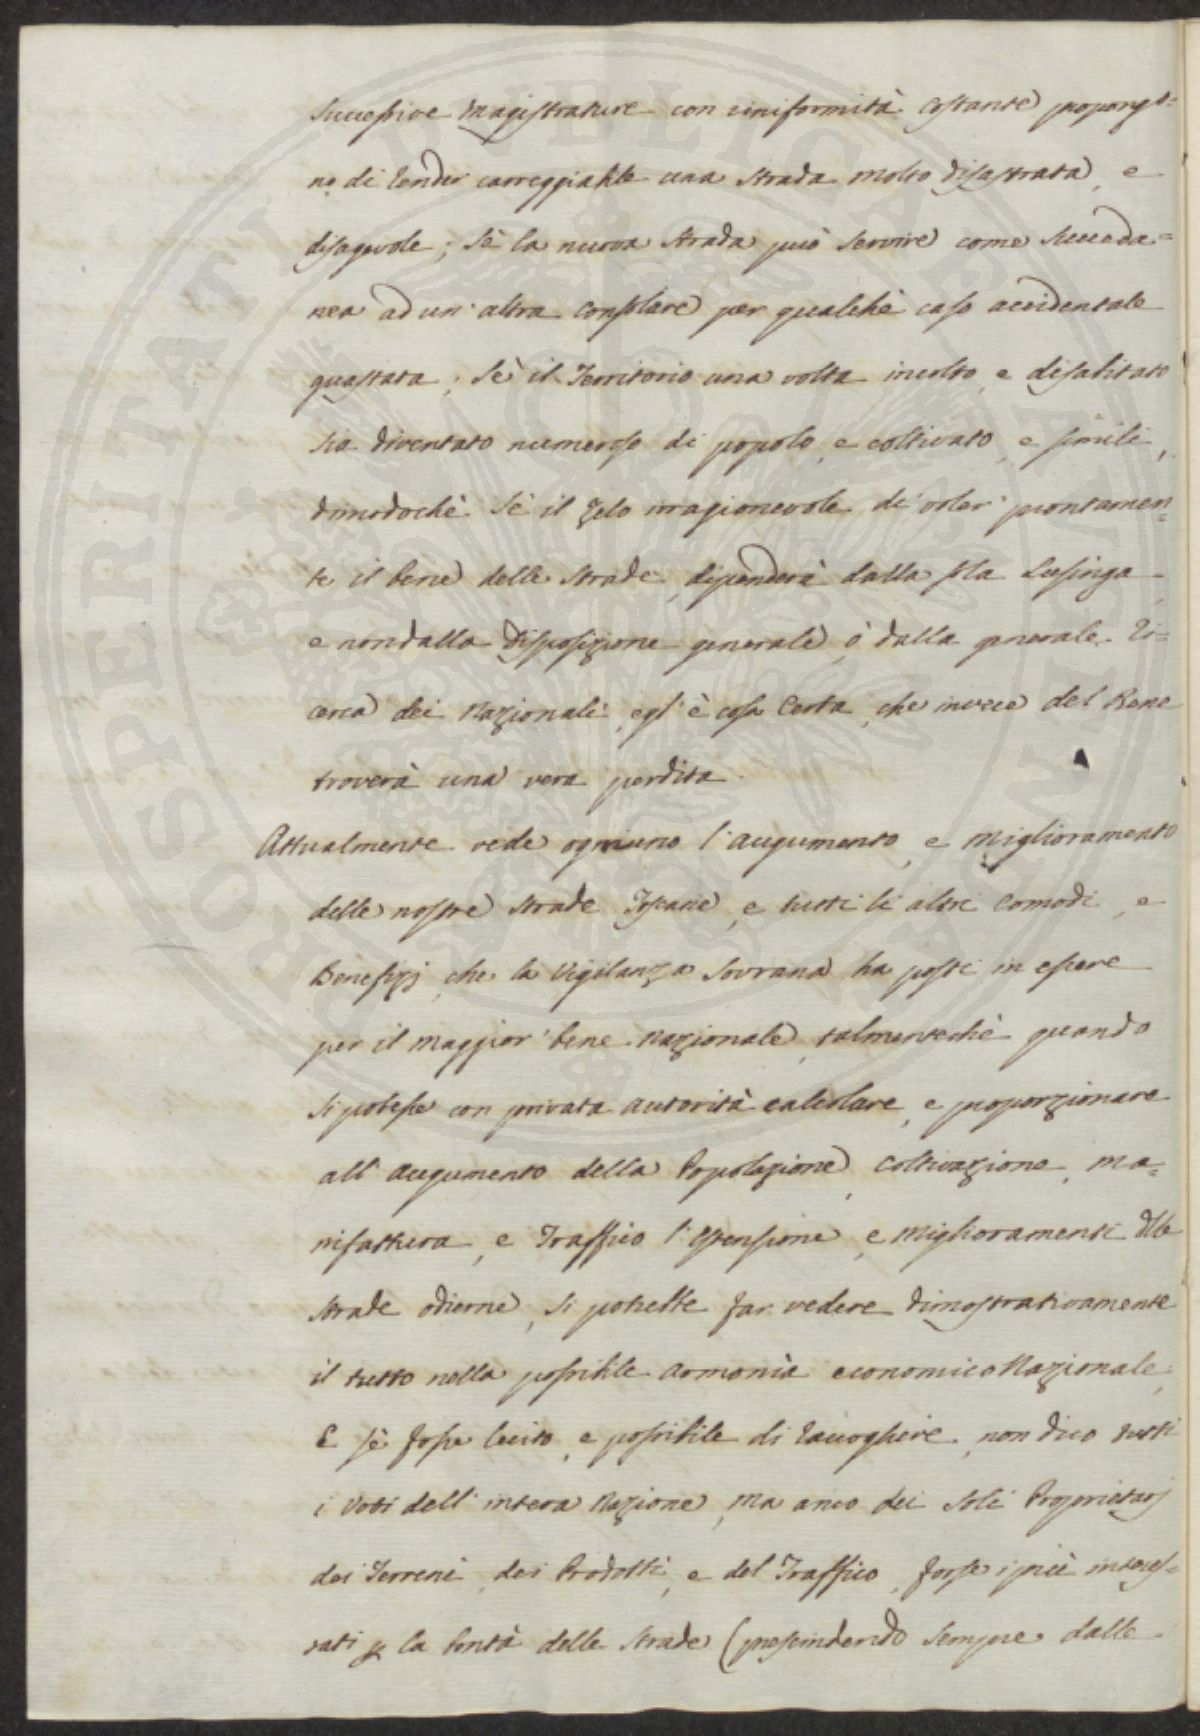 successive Magistrature con uniformità costante propongo=
no di render carreggiabile una strada molto disastrata, e
disagevole; Sè la nuova strada può servire come succeda=
nea ad un' altra Consolare per qualchè caso accidentale
guastata; Sè il Territorio una volta incolto, e disabitato
sia diventato numeroso di popolo, e coltivato, e simili,
dimodochè Sè il zelo irragionevole di voler prontamen=
te il bene delle strade, dipenderà dalla sola Lusinga,
e non dalla Disposizione generale, ò dalla generale Ri=
cerca dei Nazionali, egl' è cosa Certa, che invece del Bene
troverà una vera perdita.
Attualmente vede ogniuno l' augumento, e miglioramento
delle nostre strade Toscane, e tutti li altri Comodi, e
Benefizj, che la Vigilanza Sovrana ha posti in essere
per il maggior' bene Nazionale, talmentechè quando
si potesse con privata autorità calcolare, e proporzionare
all' augumento della Popolazione, Coltivazione, Ma=
nifattura, e Traffico l' estensione, e Miglioramenti dlle
strade odierne, si potrebbe far vedere dimostrativamente
il tutto nella possibile armonìa economico Nazionale.
E sè fosse lecito, e possibile di raccogliere, non dico tutti
i Voti dell' intera Nazione, Ma anco dei soli Proprietarj
dei Terreni, dei Prodotti, e del Traffico, forse i più interes=
sati p la bontà delle strade (prescindendo sempre dalle
PROSPERITATI PUBLICAE AUGENDAE